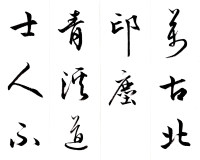 萬古北
邙塵
青溪道
士人不